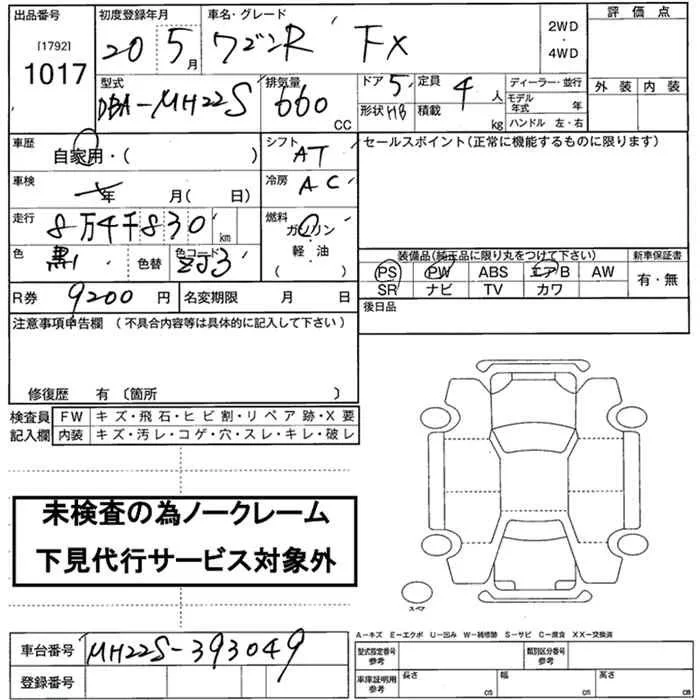 出品番号 初度登録年月 車名・グレード 2WD・4WD 評価点
[1792]
1017
20 5月 ワゴンR FX
型式 排気量 ドア 5 定員 4人 ディーラー・並行 外装 内装
DBA-MH22S 660 CC 形状 HB 積載 kg モデル年式 年
ハンドル 左・右
車歴 自家用・( ) シフト AT セールスポイント(正常に機能するものに限ります)
車検 年 月( 日) 冷房 AC
走行 8万4千830 km 燃料 ガソリン
軽・油
( )
色 黒 色替 色コード ZJ3
装備品(純正品に限り丸をつけて下さい) 新車保証書
PS PW ABS エアB AW 有・無
SR ナビ TV カワ
R券 9200円 名変期限 月 日 後日品
注意事項申告欄 (不具合内容等は具体的に記入して下さい)
修復歴 有 〔箇所 〕
検査員 FW キズ・飛石・ヒビ割・リペア跡・X要
記入欄 内装 キズ・汚レ・コゲ・穴・スレ・キレ・破レ
未検査の為ノークレーム
下見代行サービス対象外
スペア
A-キズ E-エクボ U-凹み W-補修跡 S-サビ C-腐食 XX-交換済
車台番号 MH22S-393049 型式指定番号 参考 類別区分番号 参考
登録番号 車庫証明用 参考 長さ cm 幅 cm 高さ cm